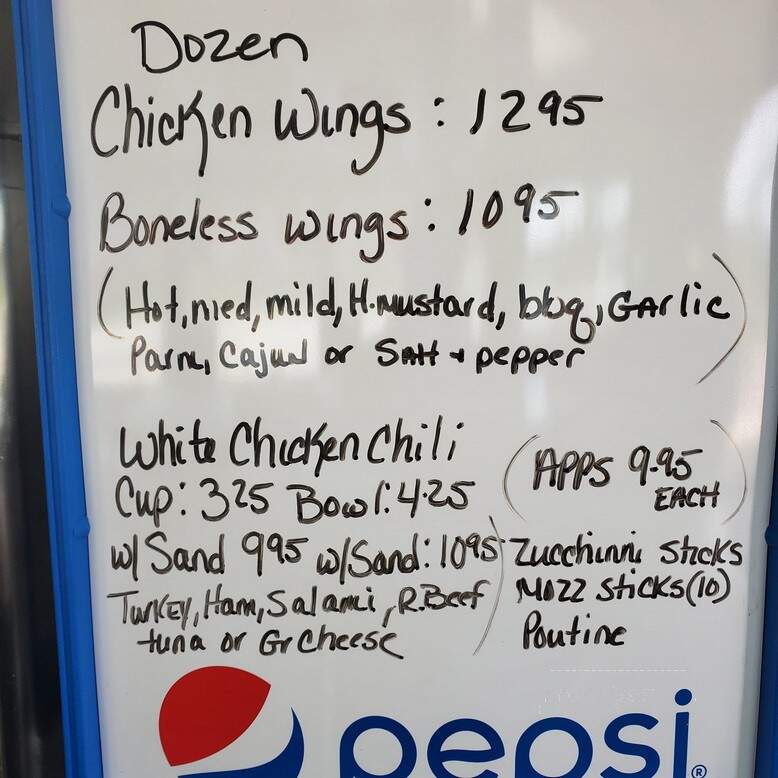 Dozen
Chicken Wings: 1295
Boneless wings: 1095
(Hot, med, mild, H.mustard, bbq, GArlic
Parm, Cajun or Salt + pepper)
White Chicken Chili
Cup: 325 Bowl: 4.25
w/ Sand 995 w/Sand: 1095
Turkey, Ham, Salami, R.Beef
tuna or Gr Cheese
(APPS 9.95
EACH)
Zucchinni Sticks
Mozz Sticks (10)
Poutine
pepsi®